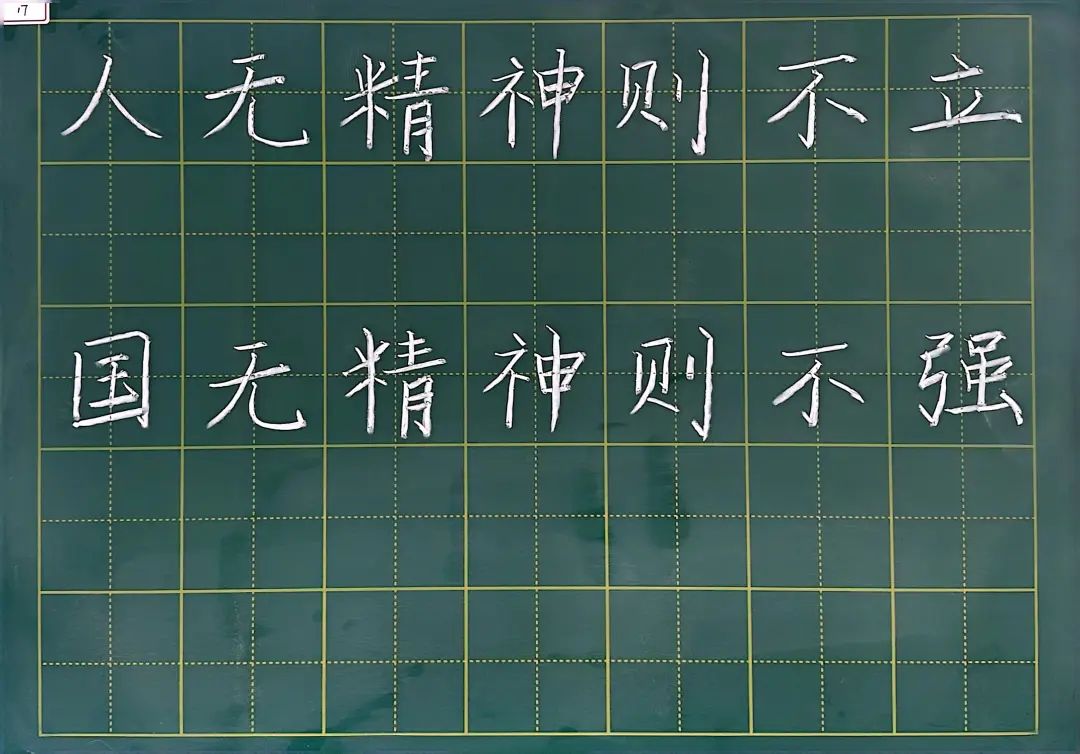 17
人无精神则不立
国无精神则不强